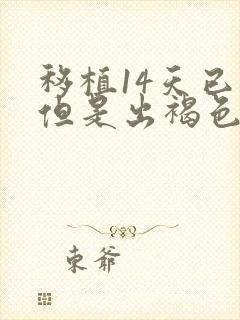 移植14天已
但是出褐色
东爷